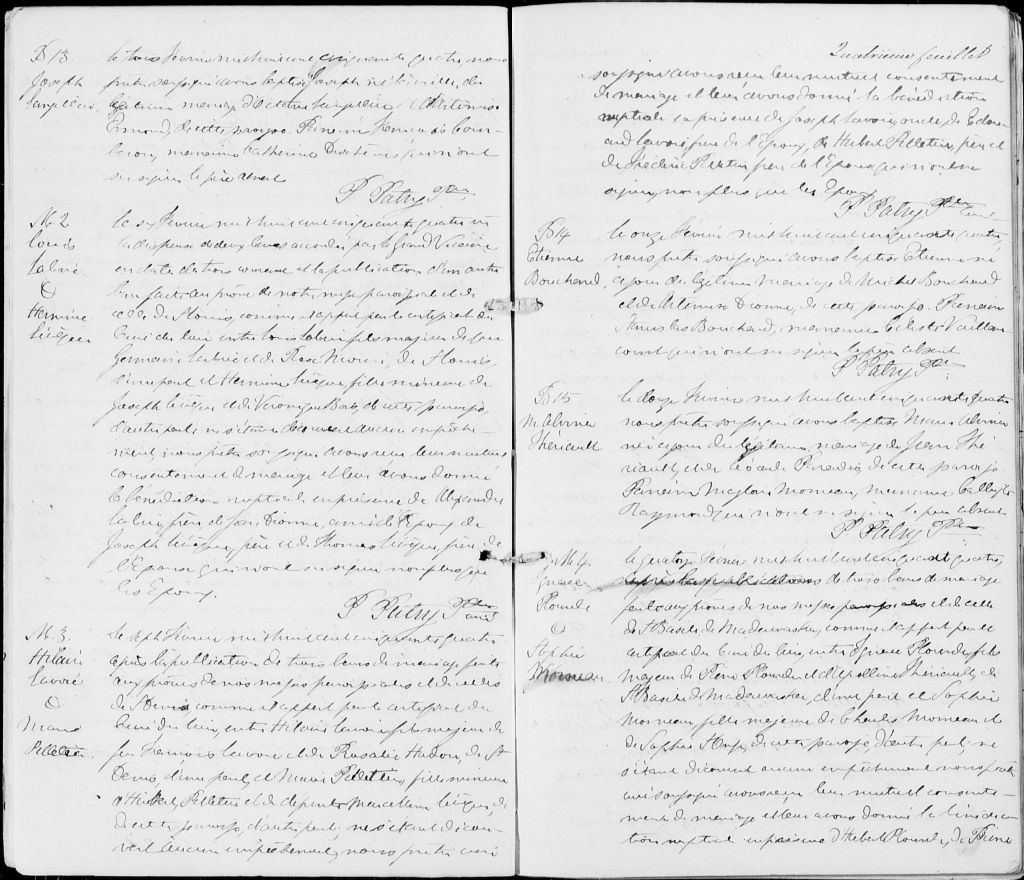 B 13
Joseph
le trois Fevrier mil huit cent cinquante quatre, nous
pretre soussigné avons baptisé Joseph né la veille, du
légitime mariage d'Octave et d'Artemise
Emond, de cette paroisse. Parrain
marraine Catherine qui n'ont
su signer le père absent
P. Patry Ptre
M. 2
Louis
Labrie
&
Hermine
Lévêque
le six Fevrier mil huit cent cinquante quatre vu
la dispense de deux bans accordée par le Grand Vicaire
en date du trois courant et la publication d'un autre
ban faite au prône de notre messe paroissiale et de
celle de comme il appert par le certificat du
Curé du lieu entre Louis Labrie fils majeur de feu
Germain Labrie et de Rose de
d'une part et Hermine Lévêque fille mineure de
Joseph Lévêque et de Véronique de cette paroisse,
d'autre part, ne s'étant découvert aucun empêche-
ment, nous pretre soussigné avons reçu leur mutuel
consentement de mariage et leur avons donné
la bénédiction nuptiale en présence de Alexandre
Labrie, frère de Jean Dionne, ami de l'Epoux de
Joseph Lévêque, père et de Thomas Lévêque, frère de
l'Epouse qui n'ont su signer non plus que
les Epoux.
P. Patry Ptre
curé
M. 3
Hilaire
Lavoie
&
Marie
Pelletier
le sept Fevrier mil huit cent cinquante quatre
après la publication de trois bans de mariage faite
aux prônes de nos messes paroissiales et de celles
de St Denis comme il appert par le certificat du
Curé du lieu, entre Hilaire Lavoie fils majeur de
feu François Lavoie et de Rosalie Hudon, de St
Denis d'une part, et Marie Pelletier, fille mineure
d'Hubert Pelletier et de défunte Marcelline Lévêque, de
de cette paroisse, d'autre part, ne s'étant décou-
vert aucun empêchement, nous pretre curé
Quatrième feuillet
soussigné avons reçu leur mutuel consentement
de mariage et leur avons donné la bénédiction
nuptiale en présence de Joseph Lavoie, oncle, de Edou-
ard Lavoie frère de l'Epoux, de Hubert Pelletier, père et
de Frédéric Pelletier frère de l'Epouse qui n'ont su
signer, non plus que les Epoux
P. Patry Ptre
curé
B 14
Etienne
Bouchard
le onze Fevrier mil huit cent cinquante quatre,
nous pretre soussigné avons baptisé Etienne né
ce jour du légitime mariage de Bouchard
et de Artemise Dionne, de cette paroisse. Parrain
Bouchard, marraine Céleste Vaillan-
court qui n'ont su signer le père absent
P. Patry Ptre
B 15
M. Alvine
Thériault
le douze Fevrier mil huit cent cinquante quatre
nous pretre soussigné avons baptisé Marie Alvine
née ce jour du légitime mariage de Jean Thé-
riault, et de Paradis, de cette paroisse.
Parrain Morneau, marraine
Raymond qui n'ont su signer le père absent
P. Patry Ptre
M. 4.
Ignace
Plourde
&
Sophie
Morneau
le quatorze Fevrier mil huit cent cinquante quatre,
après la publication de trois bans de mariage
faite aux prônes de nos messes paroissiales et de celle
de St Basile de Madawaska, comme il appert par le
certificat du Curé du lieu, entre Ignace Plourde, fils
majeur de Plourde et d'Apolline Thériault, de
St Basile de Madawaska, d'une part et Sophie
Morneau fille majeure de Charles Morneau et
de Sophie de cette paroisse, d'autre part, ne
s'étant découvert aucun empêchement nous pretre
curé soussigné avons reçu leur mutuel consente-
ment de mariage et leur avons donné la bénédic-
tion nuptiale en présence d'Hubert Plourde, de